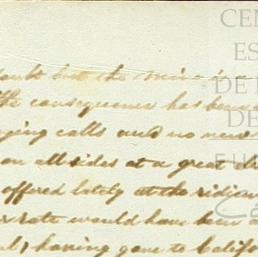 doubt but the mine is a
the consequence has been
ging calls and no new
on all sides at a great di
offered lately at the ridicu
r rate would have been a
al, having gone to Califo
CEN
ES
DE
DE